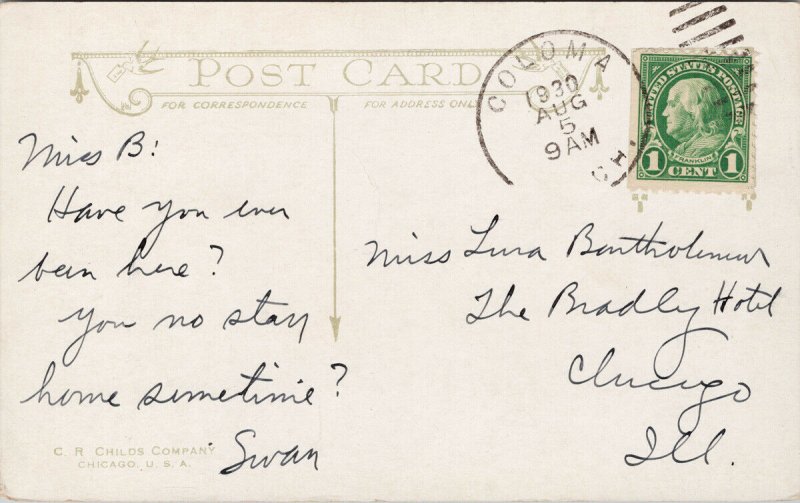 POST CARD
FOR CORRESPONDENCE
FOR ADDRESS ONLY
COLOMA
1930
AUG
5
9 AM
CH.
UNITED STATES POSTAGE
FRANKLIN
1 CENT 1
Miss B:
Have you ever
been here?
You no stay
home sometime?
Swan
Miss Lura Bartholomew
The Bradly Hotel
Chicago
Ill.
C. R. CHILDS COMPANY
CHICAGO, U. S. A.